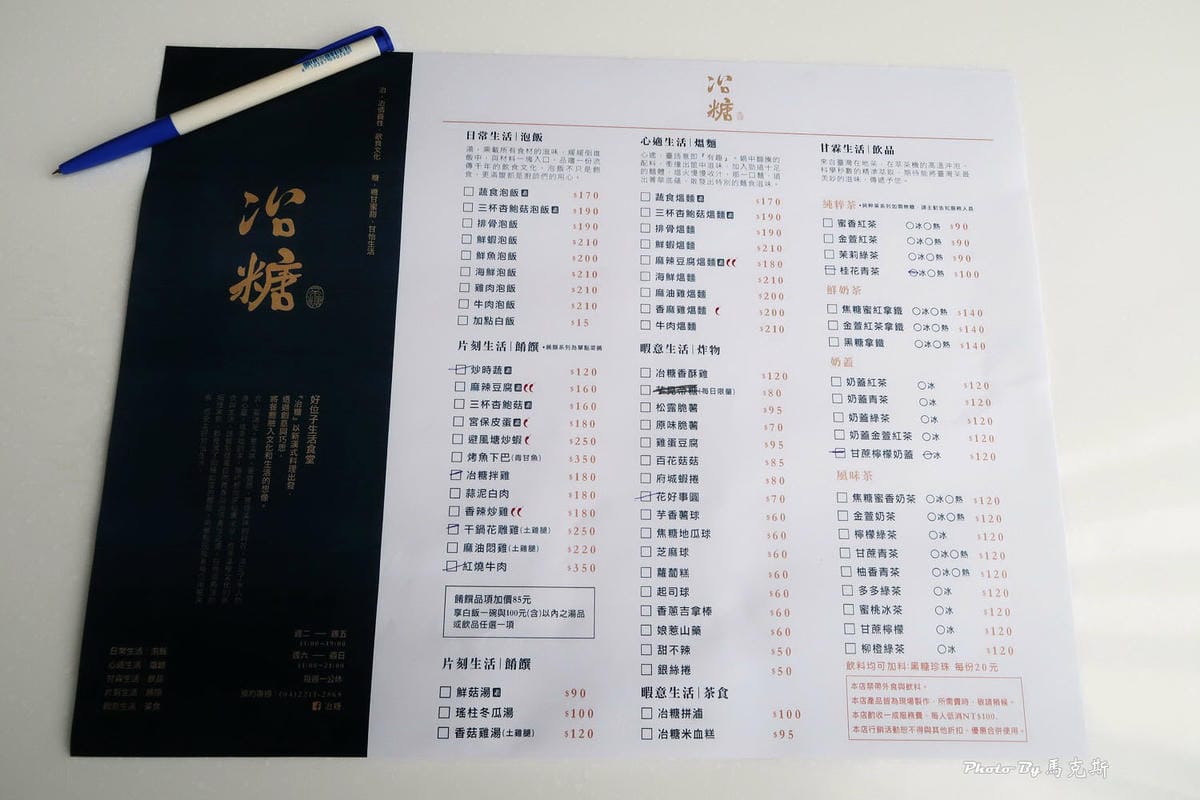 冶
糖
好位子生活食堂
『冶糖』以新漢式料理出發，
透過創意與巧思，
將餐廳融入文化和生活的想像。
日常生活｜泡飯
心適生活｜熅麵
甘霖生活｜飲品
片刻生活｜餚饌
暇意生活｜茶食
週二 — 週五
11:00~19:00
週六 — 週日
11:00~21:00
每週一公休
冶糖
冶
糖
日常生活｜泡飯
蔬食泡飯 $170
三杯杏鮑菇泡飯 $190
排骨泡飯 $190
鮮蝦泡飯 $210
鮮魚泡飯 $200
海鮮泡飯 $210
雞肉泡飯 $210
牛肉泡飯 $210
加點白飯 $15
片刻生活｜餚饌 •餚饌系列為單點菜餚
炒時蔬 $120
麻辣豆腐 $160
三杯杏鮑菇 $160
宮保皮蛋 $180
避風塘炒蝦 $250
烤魚下巴(青甘魚) $350
冶糖拌雞 $180
蒜泥白肉 $180
香辣炒雞 $180
干鍋花雕雞(土雞腿) $250
麻油悶雞(土雞腿) $220
紅燒牛肉 $350
餚饌品項加價85元
享白飯一碗與100元(含)以內之湯品
或飲品任選一項
片刻生活｜餚饌
鮮菇湯 $90
瑤柱冬瓜湯 $100
香菇雞湯(土雞腿) $120
心適生活｜熅麵
蔬食熅麵 $170
三杯杏鮑菇熅麵 $190
排骨熅麵 $190
鮮蝦熅麵 $210
麻辣豆腐熅麵 $180
海鮮熅麵 $210
麻油雞熅麵 $200
香麻雞熅麵 $200
牛肉熅麵 $210
暇意生活｜炸物
冶糖香酥雞 $120
(每日限量) $80
松露脆薯 $95
原味脆薯 $70
雞蛋豆腐 $95
百花菇菇 $85
府城蝦捲 $80
花好事圓 $70
芋香薯球 $60
焦糖地瓜球 $60
芝麻球 $60
蘿蔔糕 $60
起司球 $60
香蔥吉拿棒 $60
娘惹山藥 $60
甜不辣 $50
銀絲捲 $50
暇意生活｜茶食
冶糖拼滷 $100
冶糖米血糕 $95
甘霖生活｜飲品
來自臺灣在地茶，在萃茶機的高溫沖泡、
科學秒數的精準萃取，期待能將臺灣茶最
美妙的滋味，傳遞予您。
純粹茶 •純粹茶系列如需無糖，請主動告知服務人員
蜜香紅茶 ○冰○熱 $90
金萱紅茶 ○冰○熱 $90
茉莉綠茶 ○冰○熱 $90
桂花青茶 ○冰○熱 $100
鮮奶茶
焦糖蜜紅拿鐵 ○冰○熱 $140
金萱紅茶拿鐵 ○冰○熱 $140
黑糖拿鐵 ○冰○熱 $140
奶蓋
奶蓋紅茶 ○冰 $120
奶蓋青茶 ○冰 $120
奶蓋綠茶 ○冰 $120
奶蓋金萱紅茶 ○冰 $120
甘蔗檸檬奶蓋 ○冰 $120
風味茶
焦糖蜜香奶茶 ○冰○熱 $120
金萱奶茶 ○冰○熱 $120
檸檬綠茶 ○冰 $120
甘蔗青茶 ○冰○熱 $120
柚香青茶 ○冰○熱 $120
多多綠茶 ○冰 $120
蜜桃冰茶 ○冰 $120
甘蔗檸檬 ○冰 $120
柳橙綠茶 ○冰 $120
飲料均可加料:黑糖珍珠 每份20元
本店禁帶外食與飲料。
本店產品皆為現場製作，所需費時，敬請稍候。
本店酌收一成服務費，每人低消NT$100.
本店行銷活動恕不得與其他折扣、優惠合併使用。
Photo By 馬克斯